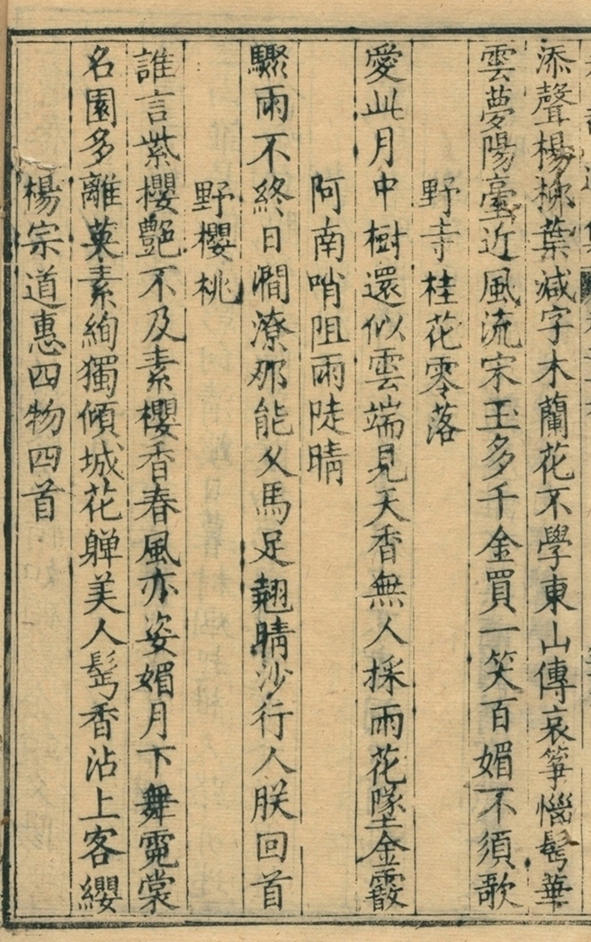 添聲楊柳葉減字木蘭花不學東山傳哀箏惱鬂華
雲夢陽臺近風流宋玉多千金買一笑百媚不須歌
野寺桂花零落
愛此月中樹還似雲端見天香無人採雨花墜金霰
阿南哨阻雨陡晴
驟雨不終日澗潦那能久馬足翹晴沙行人朕回首
野櫻桃
誰言紫櫻艷不及素櫻香春風亦姿媚月下舞霓裳
名園多離英素絢獨傾城花亸美人髩香沾上客纓
楊宗道惠四物四首